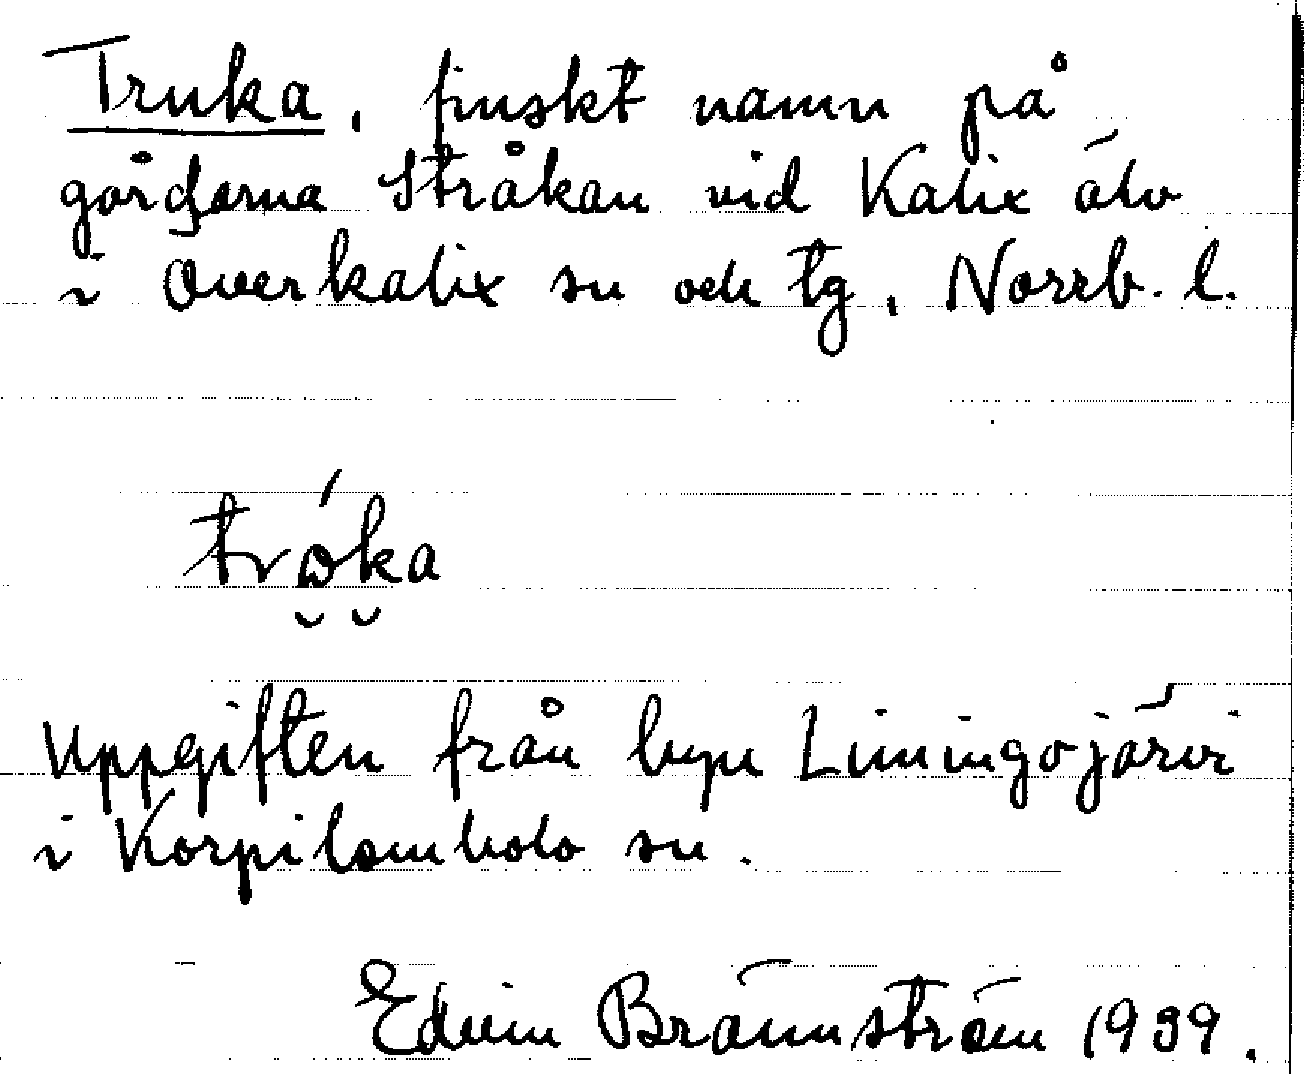 Truka, finskt namn på
gårdarna Stråkan vid Kalix älv
i Överkalix sn och tg, Norrb. l.
trǿka
Uppgiften från byn Limingojärvi
i Korpilombolo sn.
Edvin Brännström 1939.